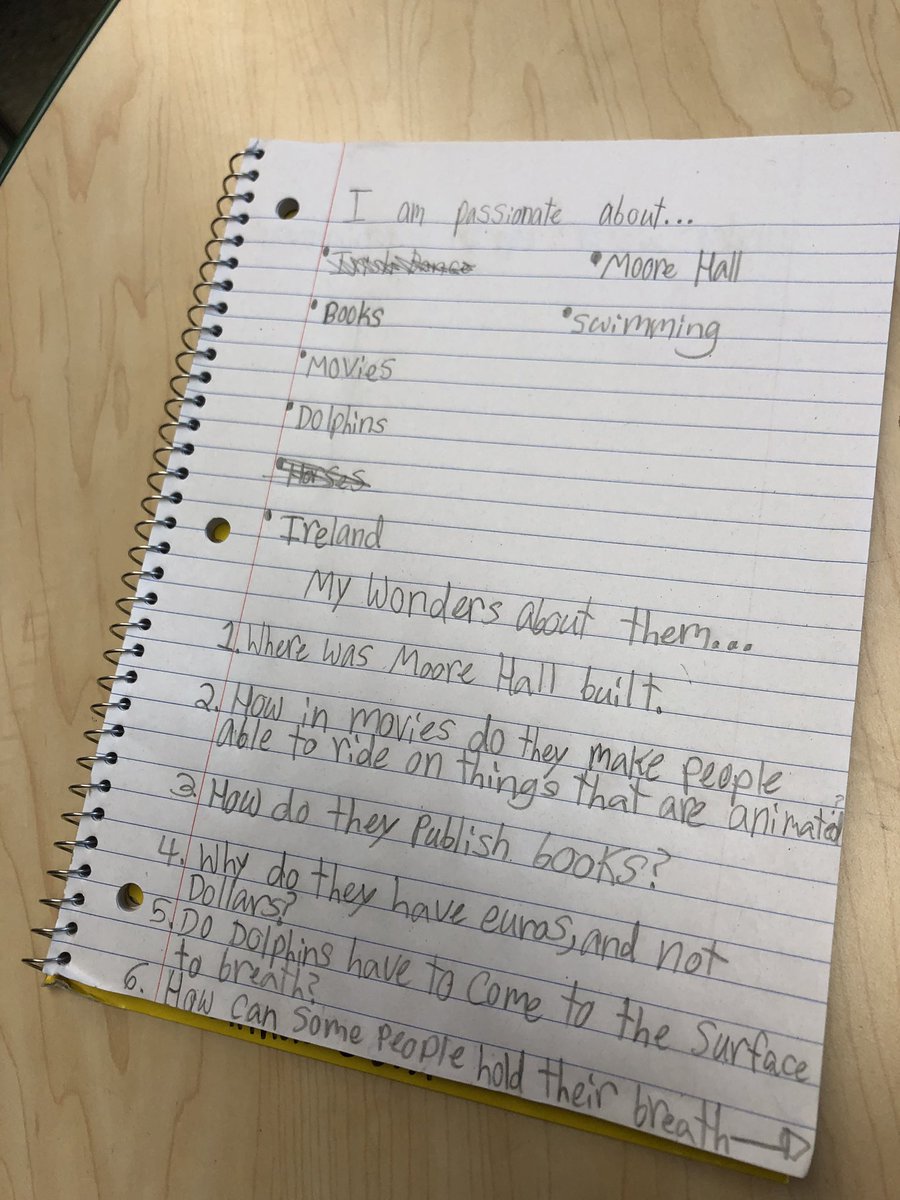 I am passionate about...
• Irish Dance
• Moore Hall
• Books
• swimming
• Movies
• Dolphins
• Horses
• Ireland
My Wonders about them...
1. Where was Moore Hall built.
2. How in movies do they make people
able to ride on things that are animated?
3. How do they Publish books?
4. Why do they have euros, and not
Dollars?
5. Do Dolphins have to Come to the Surface
to breath?
6. How can Some People hold their breath